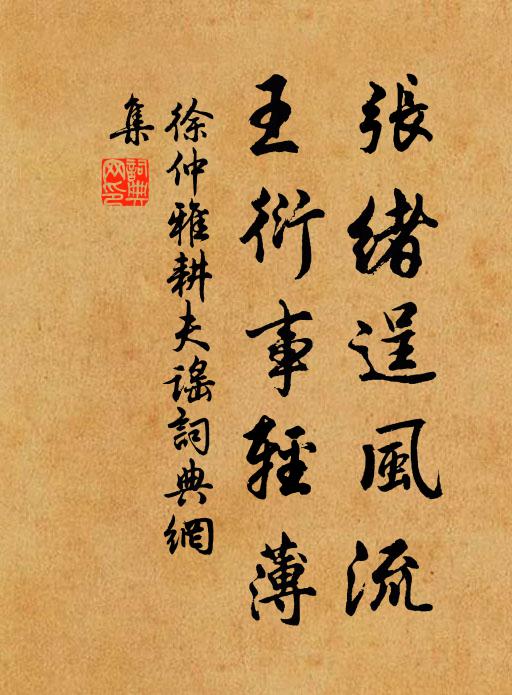 張緒逞風流
王衍事輕薄
徐仲雅耕夫謠詞典網
集
詞典
网印